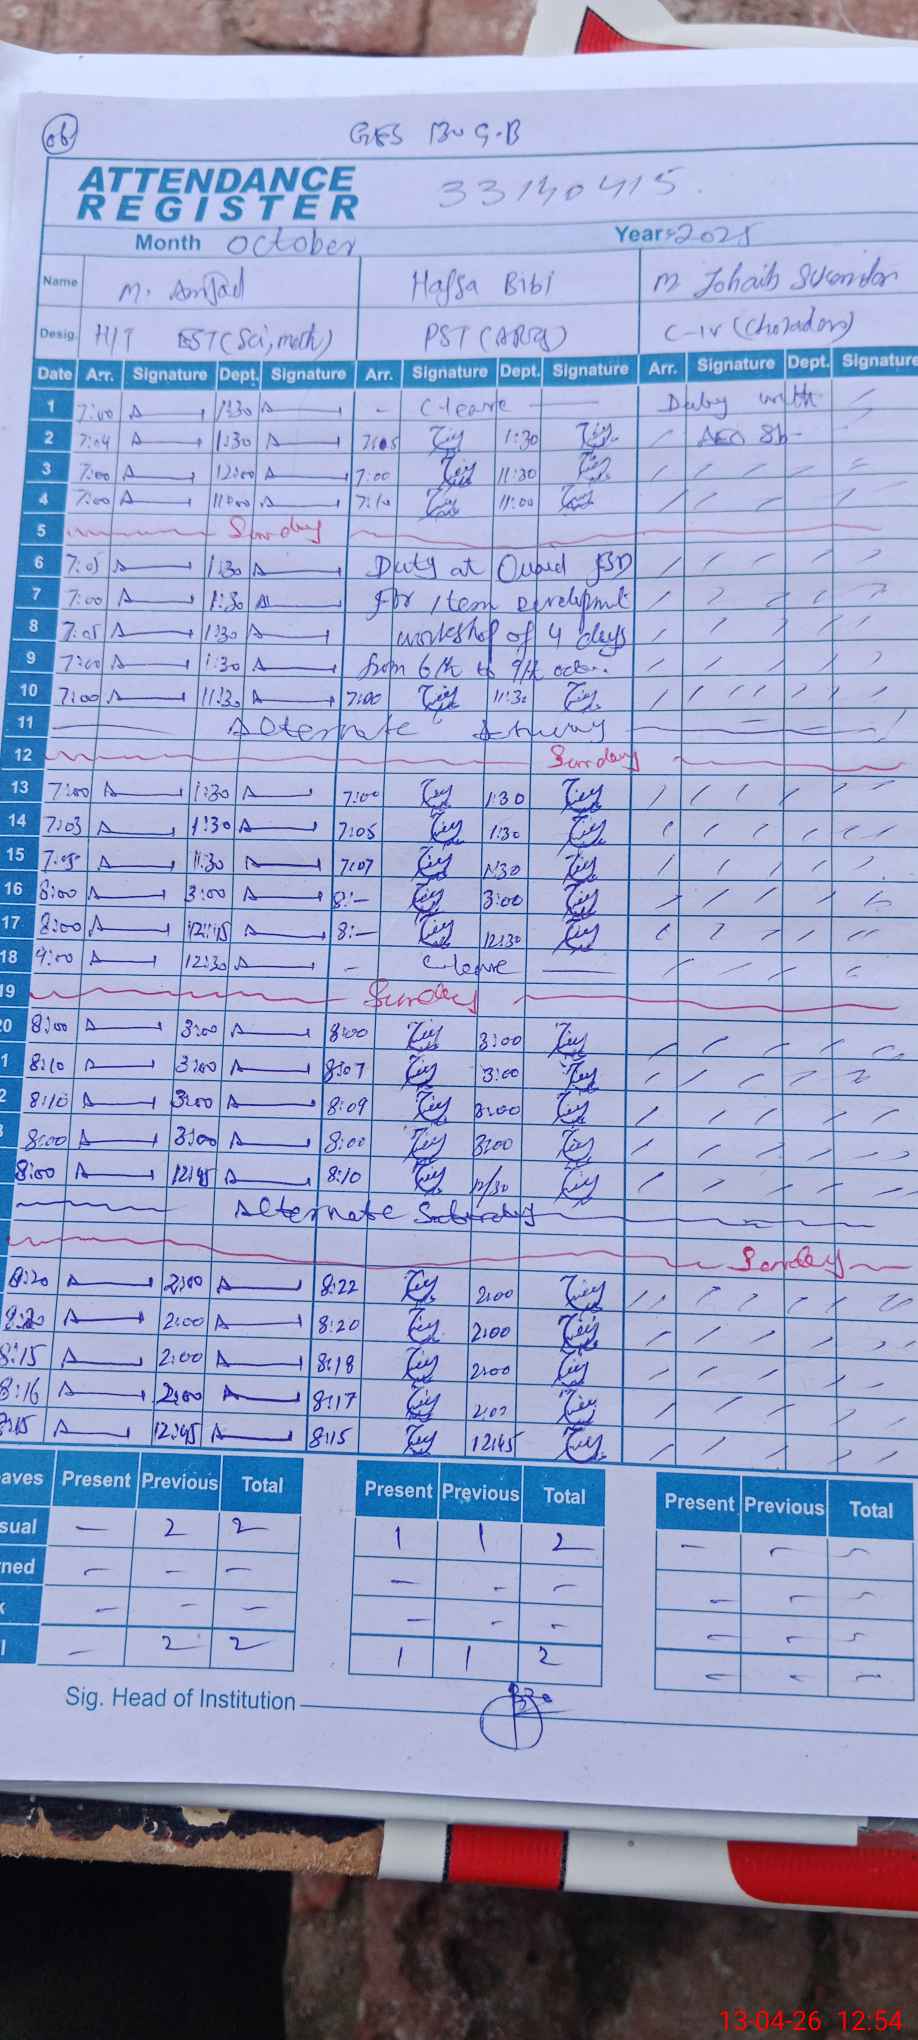 06 GES 130 G.B
ATTENDANCE
REGISTER
33140415
Month October Year 2025
Name M. Amjad Hafsa Bibi M Zohaib Sikandar
Desig. H/T EST(Sci, math) PST (ARABI) C-IV (
Date Arr. Signature Dept. Signature Arr. Signature Dept. Signature Arr. Signature Dept. Signature
1 7:00 1:30 - C leave Duty with
2 7:04 1:30 7:05 1:30 AEO
3 7:00 12:00 7:00 11:30
4 7:00 11:00 7:10 11:00
5 Sunday
6 7:05 1:30 Duty at Quaid FSD
7 7:00 1:30 For Item Development
8 7:05 1:30 workshop of 4 days
9 7:00 1:30 from 6th to 9th octo.
10 7:00 11:30 7:00 11:30
11 Alternate
12 Sunday
13 7:00 1:30 7:00 1:30
14 7:03 1:30 7:05 1:30
15 7:05 11:30 7:07 1:30
16 8:00 3:00 8:- 3:00
17 8:00 12:45 8:- 12:30
18 9:00 12:30 - C leave
19 Sunday
20 8:00 3:00 8:00 3:00
1 8:10 3:00 8:07 3:00
2 8:10 3:00 8:09 3:00
8:00 3:00 8:00 3:00
8:00 12:45 8:10 12/30
Alternate Saturday
Sunday
8:20 2:00 8:22 2:00
8:20 2:00 8:20 2:00
8:15 2:00 8:18 2:00
8:16 2:00 8:17 2:00
8:15 12:45 8:15 12:45
eaves Present Previous Total Present Previous Total Present Previous Total
sual - 2 2 1 1 2 - - -
ned - - - - - - - - -
k - - - - - - - - -
l - 2 2 1 1 2 - - -
Sig. Head of Institution
13-04-26 12:54